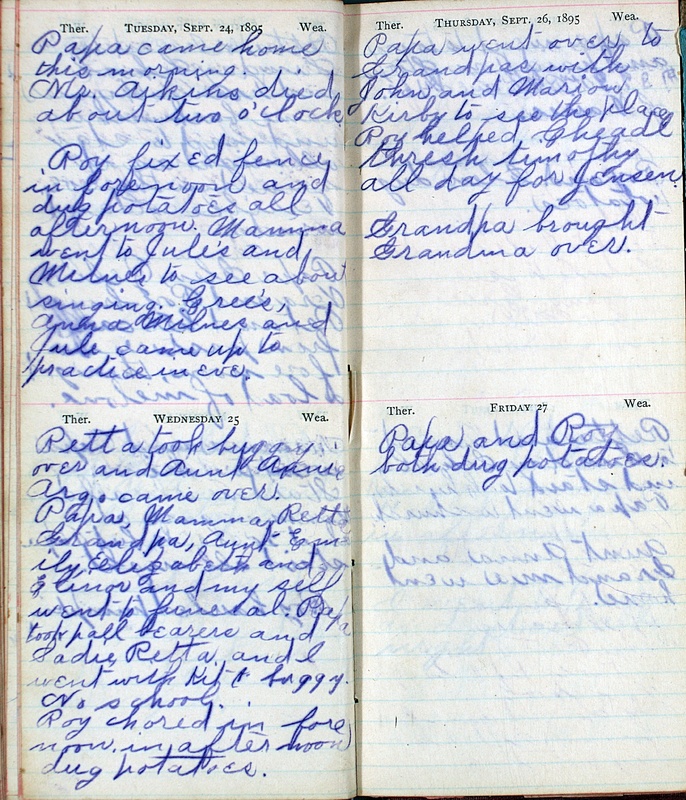 Ther. TUESDAY, SEPT. 24, 1895 Wea.
Papa came home
this morning.
Mr. Aikins died
about two o'clock
Roy fixed fence
in forenoon and
dug potatoes all
afternoon. Mamma
went to Jule's and
Milnes to see about
singing. Gree's,
Milnes and
Jule came up to
practice in eve.
Ther. WEDNESDAY 25 Wea.
Retta took buggy
over and Aunt Annie
Argo came over.
Papa, Mamma, Retta
Grandpa, Aunt Em
ily, Elizabeth and
Elinor and my self
went to funeral. Papa
took pall bearers and
Sadie, Retta, and I
went with Kit & buggy.
No school.
Roy chored in fore
noon, in after noon
dug potatoes.
Ther. THURSDAY, SEPT. 26, 1895 Wea.
Papa went over to
Grandpas with
John and Marion
Kirby to see the place
Roy helped Gheadl
thresh timothy
all day for Jensen.
Grandpa brought
Grandma over.
Ther. FRIDAY 27 Wea.
Papa and Roy
both dug potatoes.